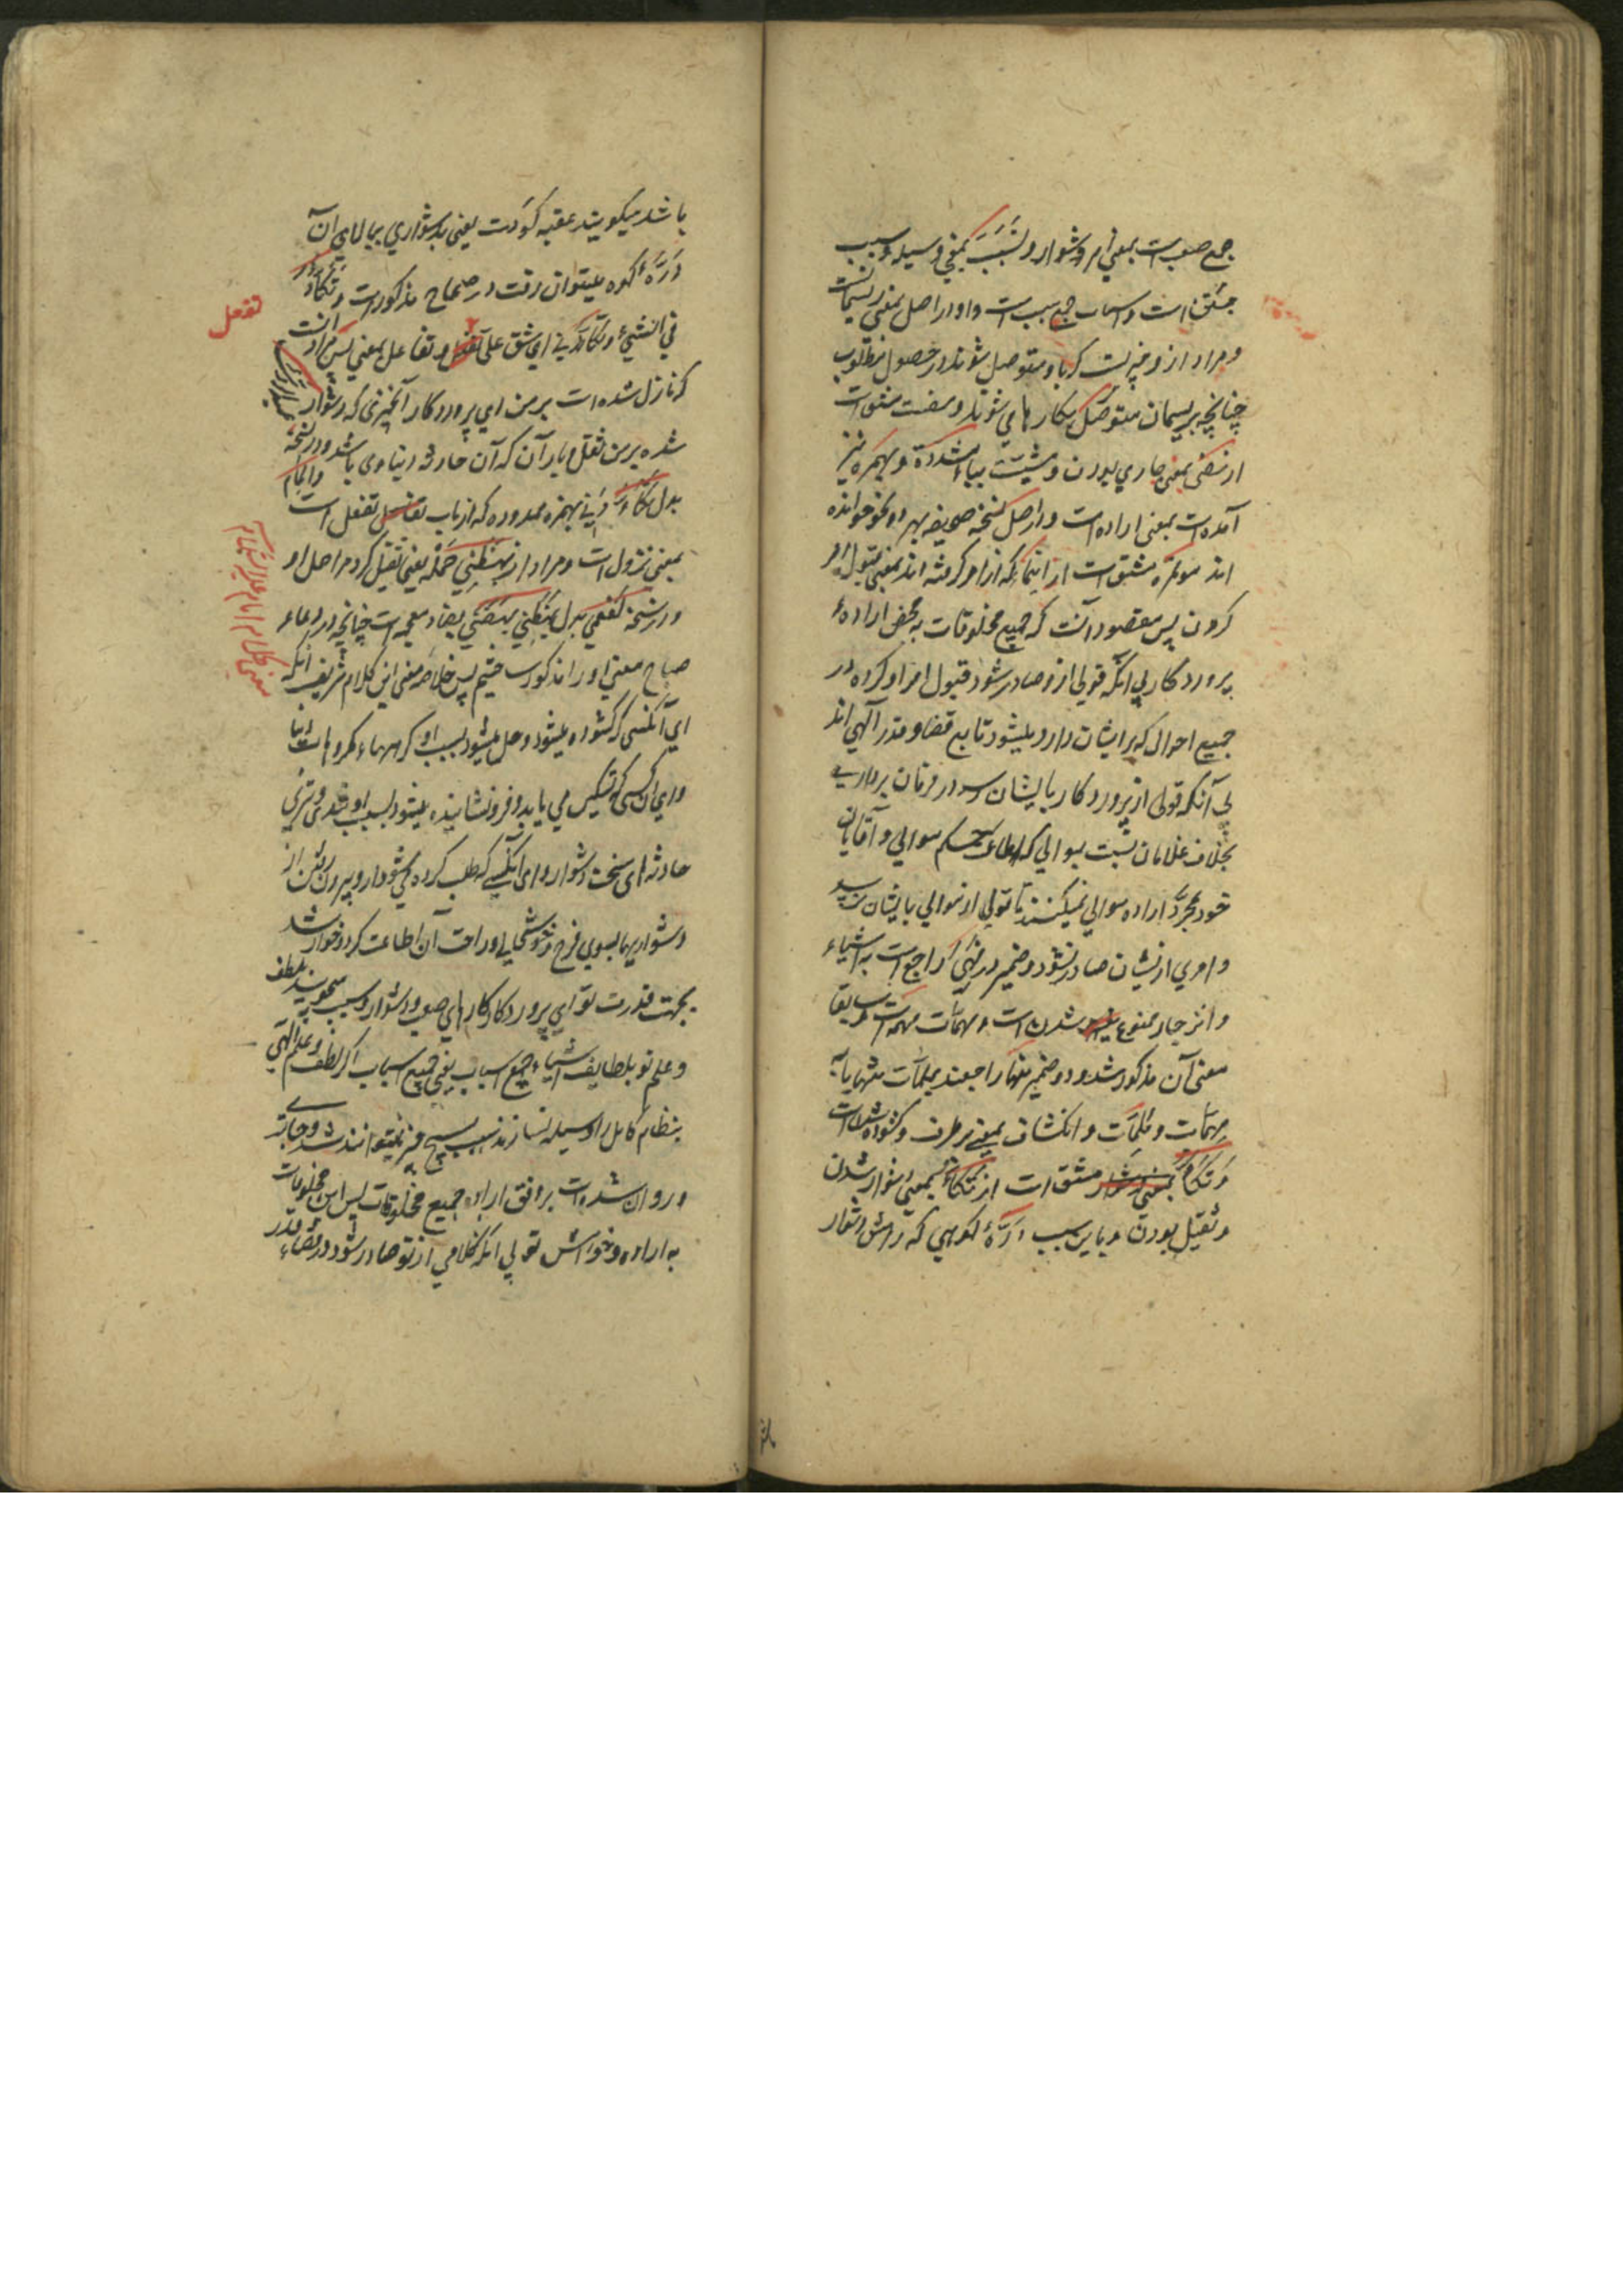 جمع صعب است بمعنی امر دشوار و تسبّبت بمعنی وسیله و سبب
مشتق است و اسباب جمع سبب است و او در اصل بمعنی ریسمانست
و مراد ازو چیزیست که باو متوصل شوند در حصول مطلوب
چنانچه بریسمان متوصل بکارها می شوند و مضت مشتق است
از مضی بمعنی جاری بودن و مشیّت بیاء مشدّدة و بهمزه نیز
آمده است بمعنی اراده است و در اصل نسخه صحیفه بهر دو نحو خوانده
اند مؤتمرة مشتق است از ایتمار که از امر گرفته اند بمعنی قبول امر
کردن پس مقصود آنست که جمیع مخلوقات به محض اراده
پروردگار بی آنکه قولی ازو صادر شود قبول امر او کرده در
جمیع احوال که برایشان وارد میشود تابع قضا و قدر آلهی اند
بی آنکه قولی از پروردگار بایشان رسد در فرمان بردارند
بخلاف غلامان نسبت بموالی که اطاعت حکم موالی و آقایان
خود بمجرد اراده موالی نمیکنند تا قولی از موالی بایشان نرسد
و امری ازیشان صادر نشود و ضمیر در نهیک راجع است به اشیاء
و انزجار ممنوع شدن است و مهمّات مهمّه است و سابقا
معنی آن مذکور شد و دو ضمیر منها راجعند بملمّات منتهایا به
مهمّات و ملمّات و انکشاف بمعنی برطرف و گشوده شدنست
و تکأد مشتق است از تکأد بمعنی دشوار شدن
و ثقیل بودن و باین سبب درّهٔ کوهی که راهش دشوار
باشد میگویند عقبه کؤدت یعنی بدشواری ببالای آن
درّهٔ کوه میتوان رفت در صحاح مذکور است و تکأّد
فی الشیء و تکاءدنی ای شق علی تفعل و تفاعل بمعنی پس مراد آنست
که نازل شده است بر من ای پروردگار آنچیزی که دشوار
شده بر من ثقل و بار آن که آن حادثه دنیاوی باشد و در نسخه
بدل تکاءدنی بهمزه ممدوده که از باب تفاعل تفعل است و المام
بمعنی نزول است و مراد از بهظنی حمله یعنی ثقیل کرد مرا حمل او
و در نسخه کفعمی بدل بهظنی بهضنی بضاد معجمه است چنانچه در دعاء
صباح معنی او را مذکور ساختیم پس خلاصه معنی این کلام شریف آنکه
ای آنکسی که گشوده میشود و حل میشود بسبب او گرههاء مکروهات دنیا
و ای آن کسی که تسکین می یابد و فرو نشانیده میشود بسبب او تندی و تیزی
حادثهای سخت دشوار و ای آنکسی که طلب کرده میشود از او بیرون رفتن از
دشواریها بسوی فرح و خوشحالی و راحت آن اطاعت کرد و خوار شد
بجهت قدرت تو ای پروردگار کارهای صعب و دشوار و سبب میجویند بلطف
و علم تو بلطایف اشیاء جمع اسباب یعنی جمیع اسباب اگر لطف و علم آلهی
بنظام کامل را وسیله نسازند سبب هیچ چیز نمیتوانند شد و جاری
و روان شده است بر وفق اراده جمیع مخلوقات پس این مخلوقات
به اراده و خواهش تو بی آنکه کلامی از تو صادر شود در قضاء و قدر
تفعل